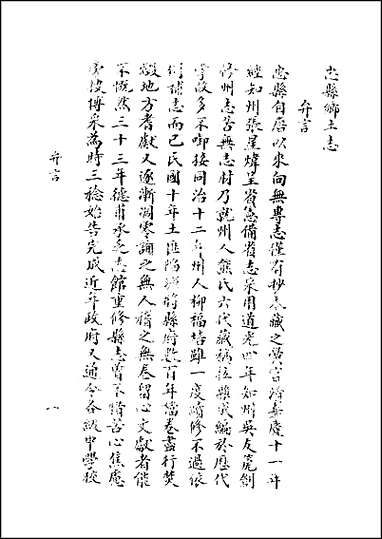 忠縣鄉土志
弁言
忠縣自唐以來向無專志僅有抄本藏之黌宮清嘉慶十一年
經知州張星煒呈省憲備省志采用道光四年知州吳友篪創
修州志苦無志材乃就州人熊氏六代藏稿拉雜成編於歷代
掌故多不啣接同治十二年州人柳福培雖一度續修不過依
例補志而已民國十年土匪陷城將縣府數百年檔卷盡行焚
燬地方耆獻又逐漸凋零詢之無人稽之無卷留心文獻者能
不慨然三十三年德甫承乏志館重修縣志曾不瞻苦心焦慮
旁披博采為時三稔始告完成近年政府又通令各級中學校
弁言
一